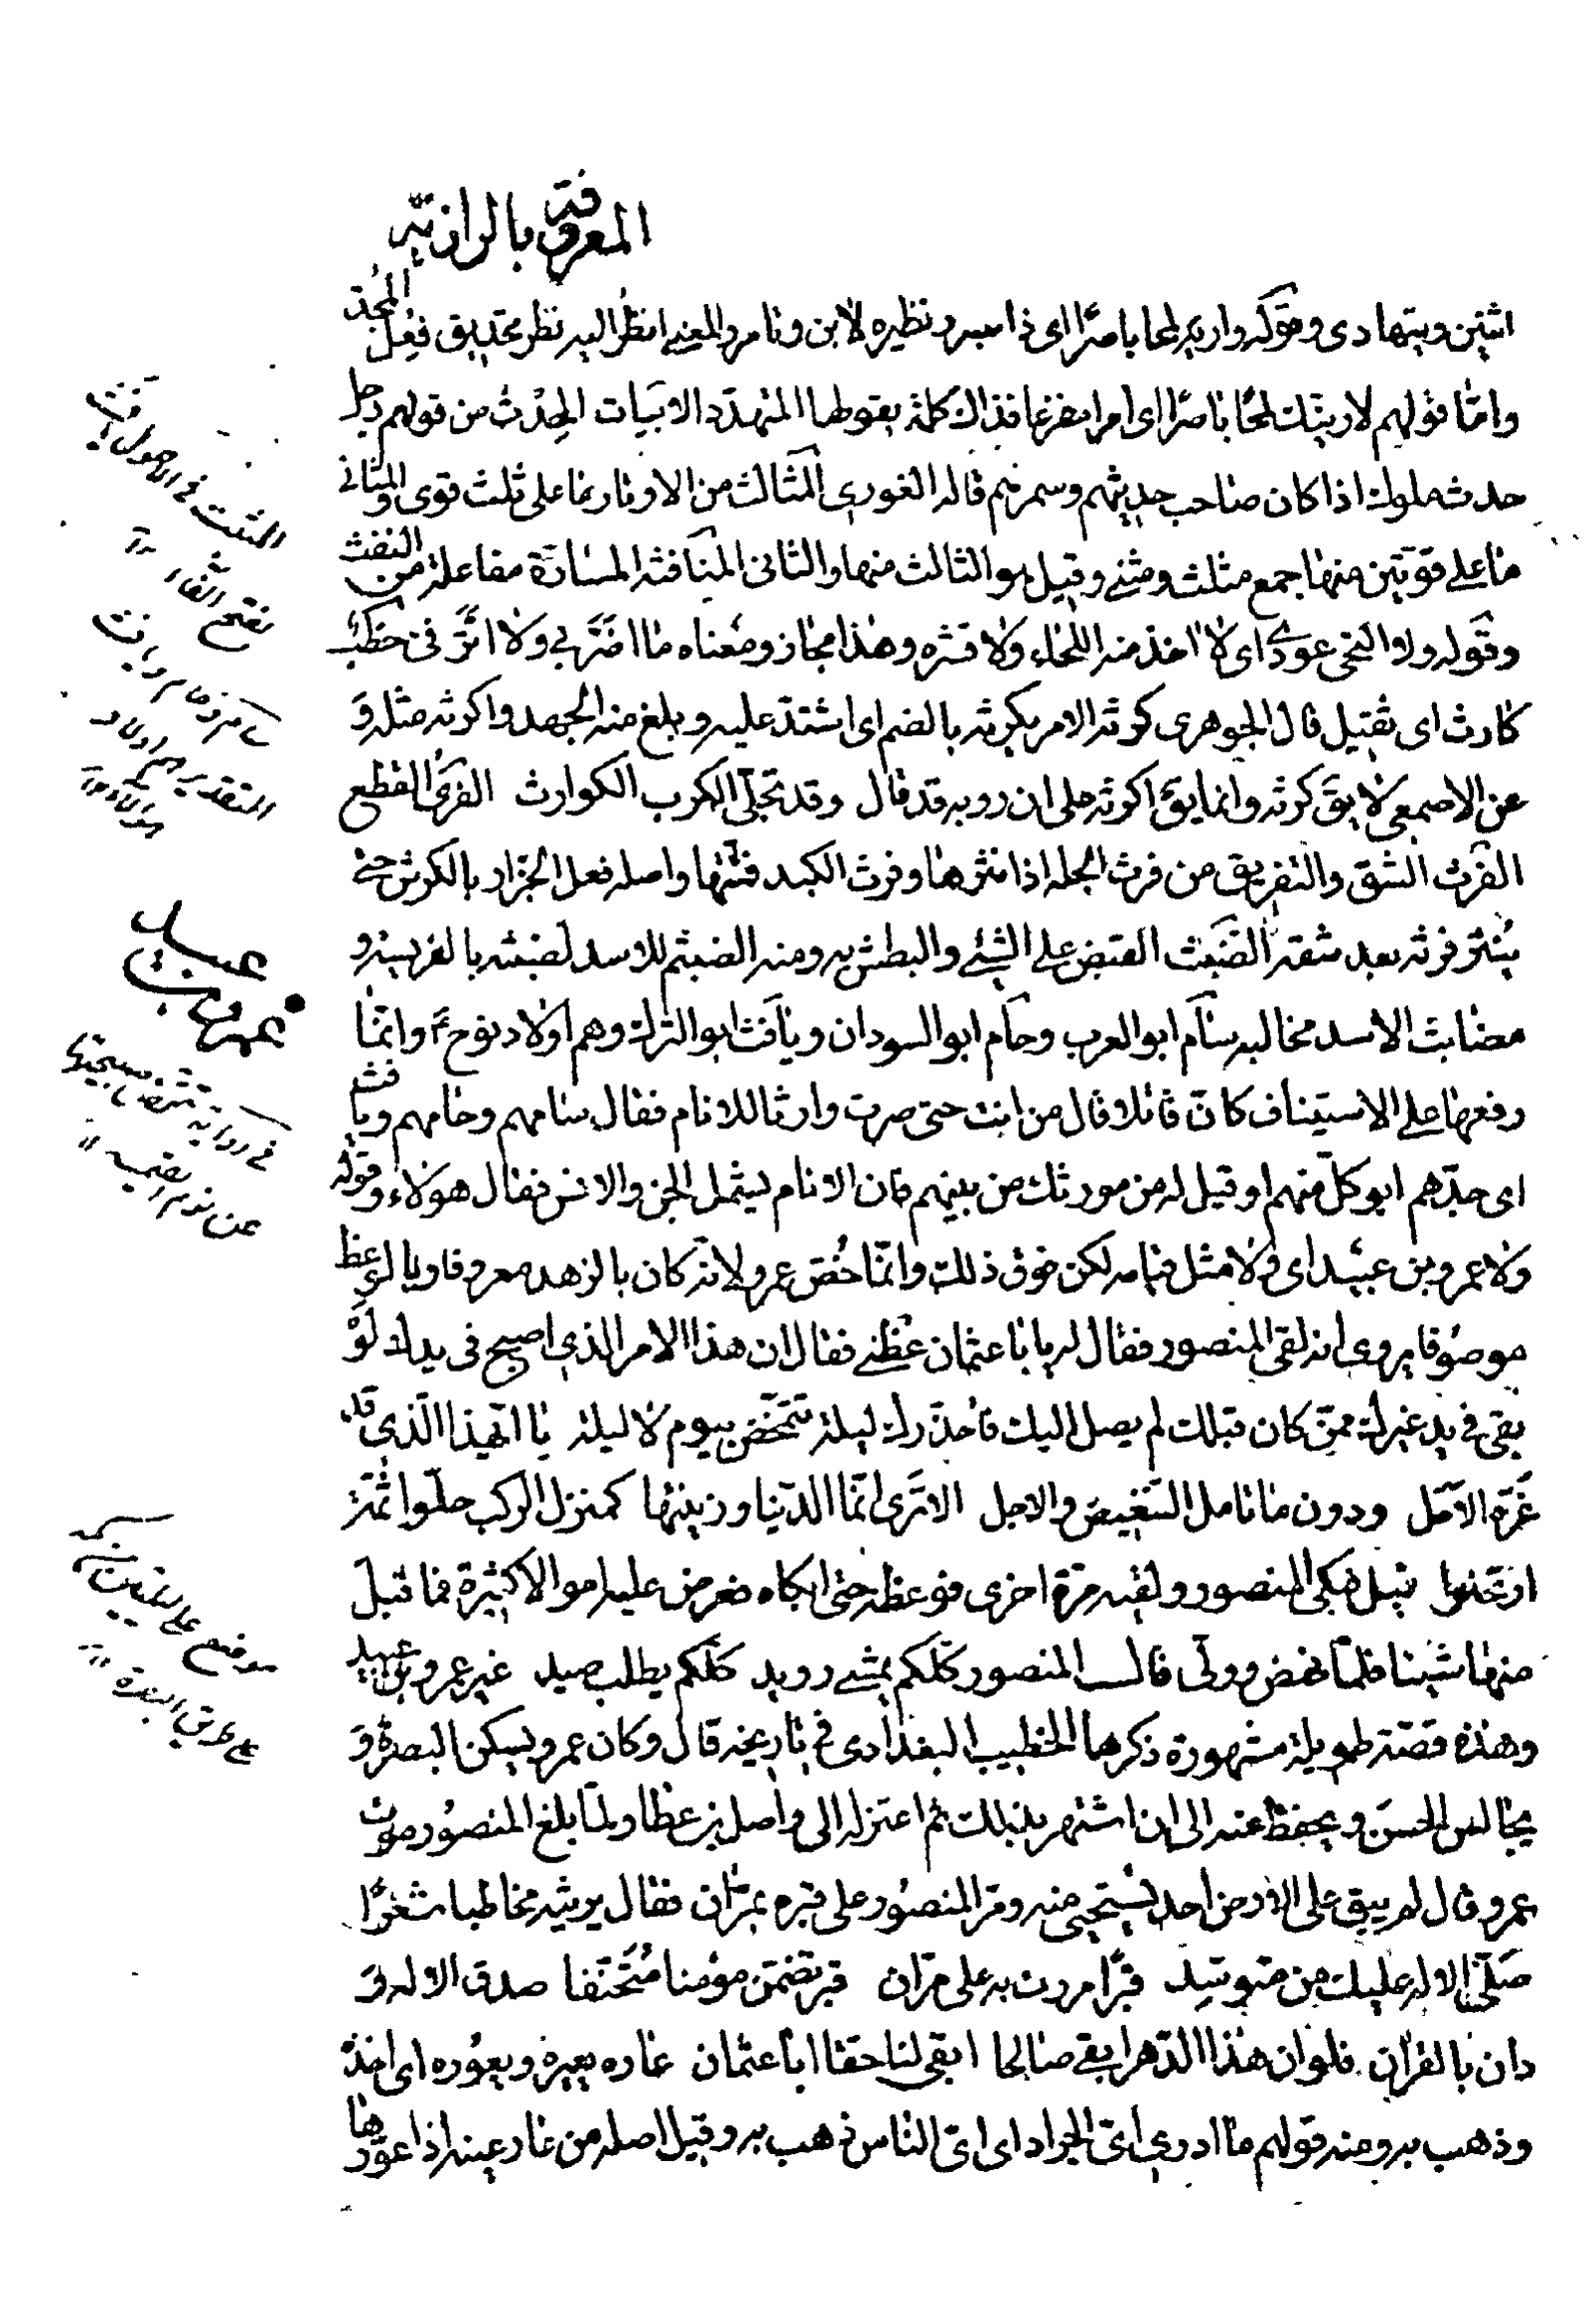 المعروفة بالرازية
اثنين ويتهادى وقوله واريه لمحا باصرًا اى ذا بصر ونظيره لابن وتامر والمعنى انظر اليه نظر تحديق فِعْل المُجدّ
وامّا قولهم لارينّك لمحًا باصرًا اى امرا مفزعا فذاك كلمة يقولها المتهدد الابيات الحِدْث من قولهم رجل
حدث ملوك اذا كان صاحب حديثهم وسمرهم قاله الغورى المثالث من الاوتار ما على ثلث قوى والمثانى
ما على قوتين منها جمع مثلث ومثنى وقيل هو الثالث منها والثانى المنافثة المسارّة مفاعلة من النفث
وقوله ولا التحى عودى اى لا اخذ منه اللحاء ولا قشره وهذا مجاز ومعناه ما اضرّ بى ولا اثّر فىّ خطب
كارث اى ثقيل قال الجوهرى كرثه الامر يكرثه بالضم اى اشتدّ عليه وبلغ منه الجهد واكرثه مثله و
عن الاصمعى لا يق كرثه وانما يق اكرثه على ان روبه قد قال وقد تجلّى الكرب الكوارث الفرى القطع
الفرث الشق والتفريق من فرث الجلة اذا نثرها وفرث الكبد فتّتها واصله فعل الجزار بالكرش حتى
يُنثر فرثه بعد شقه الضَبث القبض على الشئ والبطش به ومنه الضبثم للاسد لضبثه بالفريسة و
مضابث الاسد مخالبه سام ابو العرب وحام ابو السودان ويافث ابو الترك وهم اولاد نوح ع وانما
رفعها على الاستيناف كانّ قائلا قال من انت حتى صرت وارثا للانام فقال سامهم وحامهم ويافث
اى جدّهم ابو كل منهم او قيل له من مورثك من بينهم فان الانام يشمل الجن والانس فقال هولاء وقوله
ولا عمرو بن عبيد اى ولا مثل قيامه لكن فوق ذلك وانما خُصّ عمرو لانه كان بالزهد معروفا وبالوعظ
موصوفا يروى انه لقى المنصور فقال له يابا عثمان عظنى فقال ان هذا الامر الذى اصبح فى يدك لو
بقى فى يد غيرك ممن كان قبلك لم يصل اليك فاحذّرك ليلة تتمخّض بيوم لا ليلة يا ايّهذا الّذى قد
غرّه الامل ودون ما تامل التنغيص والاجل الا ترى انّما الدّنيا وزينتها كمنزل الركب حلّوا ثُمّت
ارتحلوا قيل فبكى المنصور ولقيه مرة اخرى فوعظه حتى ابكاه فعرض عليه اموالا كثيرة فما قبل
منها شيئا فلمّا نهض وولّى قال المنصور كلكم يمشى رويد كلكم يطلب صيد غير عمرو بن عبيد
وهذه قصّة طويلة مشهورة ذكرها الخطيب البغدادى فى تاريخه قال وكان عمرو يسكن البصرة و
يجالس الحسن ويحفظ عنه الى ان اشتهر بذلك ثم اعتزله الى واصل بن عطا ولمّا بلغ المنصور موت
عمرو قال لم يبق على الارض احد يُستحيى منه ومرّ المنصور على قبره بمرّان فقال يرثيه مخاطبا شعرًا
صلّى الاله عليك من متوسّد قبرًا مررت به على مرّان قبر تضمّن مؤمنا مُتحنّفا صدق الاله و
دان بالقران فلو ان هذا الدّهر ابقى صالحا ابقى لنا حقّا ابا عثمان عاره يعيره ويعوره اى اخذ
وذهب به ومنه قولهم ما ادرى اىّ الجراد عاره اى اىّ الناس ذهب به وقيل اصله من عار عينه اذا عوّرها
عبيد
عمرو بن
موضع على ليلتين من مكة
على طريق البصرة